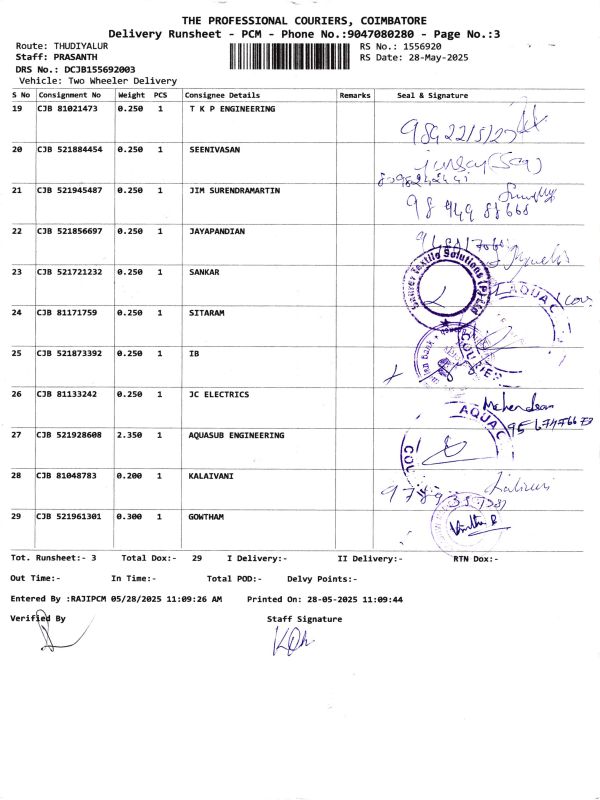 THE PROFESSIONAL COURIERS, COIMBATORE
Delivery Runsheet - PCM - Phone No.:9047080280 - Page No.:3
Route: THUDIYALUR RS No.: 1556920
Staff: PRASANTH RS Date: 28-May-2025
DRS No.: DCJB155692003
Vehicle: Two Wheeler Delivery
S No Consignment No Weight PCS Consignee Details Remarks Seal & Signature
19 CJB 81021473 0.250 1 T K P ENGINEERING
20 CJB 521884454 0.250 1 SEENIVASAN
21 CJB 521945487 0.250 1 JIM SURENDRAMARTIN
22 CJB 521856697 0.250 1 JAYAPANDIAN
23 CJB 521721232 0.250 1 SANKAR
Textile Solutions
AQUAC
24 CJB 81171759 0.250 1 SITARAM
COURIER
25 CJB 521873392 0.250 1 IB
26 CJB 81133242 0.250 1 JC ELECTRICS
AQUAC
27 CJB 521928608 2.350 1 AQUASUB ENGINEERING
COU
28 CJB 81048783 0.200 1 KALAIVANI
29 CJB 521961301 0.300 1 GOWTHAM
Tot. Runsheet:- 3 Total Dox:- 29 I Delivery:- II Delivery:- RTN Dox:-
Out Time:- In Time:- Total POD:- Delvy Points:-
Entered By :RAJIPCM 05/28/2025 11:09:26 AM Printed On: 28-05-2025 11:09:44
Verified By Staff Signature